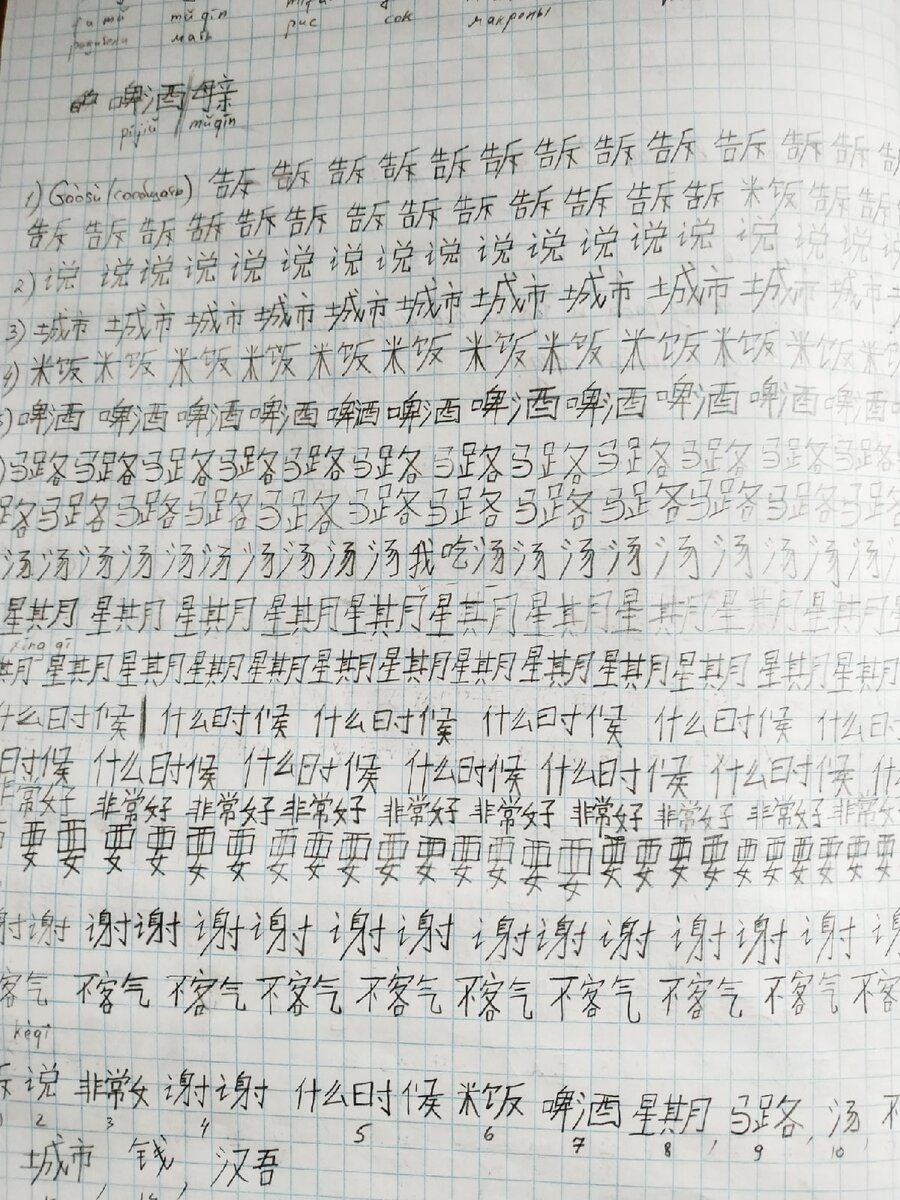 fù mǔ mǔ qīn
родители мать рис сок макароны
的 啤酒 母亲
píjiǔ mǔqīn
1) Gàosù (сообщать) 告斥 告斥 告斥 告斥 告斥 告斥 告斥 告斥 告斥 告斥 告斥 告斥 告
告斥 告斥 告斥 告斥 告斥 告斥 告斥 告斥 告斥 告斥 告斥 告斥 告斥 米饭 告斥 告斥
2) 说 说 说 说 说 说 说 说 说 说 说 说 说 说 说 说 说 说
3) 城市 城市 城市 城市 城市 城市 城市 城市 城市 城市 城市
4) 米饭 米饭 米饭 米饭 米饭 米饭 米饭 米饭 米饭 米饭 米饭 米
5) 啤酒 啤酒 啤酒 啤酒 啤酒 啤酒 啤酒 啤酒 啤酒 啤酒 啤酒
) 马路 马路 马路 马路 马路 马路 马路 马路 马路 马路 马路 马路
路 马路 马路 马路 马路 马路 马路 马路 马路 马路 马路 马路
汤 汤 汤 汤 汤 汤 汤 汤 汤 汤 我吃汤 汤 汤 汤 汤 汤 汤 汤 汤 汤
星期 星期 星期 星期 星期 星期 星期 星期 星期 星期 星期
xīng qī
期 星期 星期 星期 星期 星期 星期 星期 星期 星期 星期 星期 星期
什么时候 什么时候 什么时候 什么时候 什么时候 什么时
时候 什么时候 什么时候 什么时候 什么时候 什么时候 什
非常好 非常好 非常好 非常好 非常好 非常好 非常好 非常好 非常好 非常好
要 要 要 要 要 要 要 要 要 要 要 要 要 要 要 要 要 要 要 要 要 要 要 要 要
谢 谢谢 谢谢 谢谢 谢谢 谢谢 谢谢 谢
客气 不客气 不客气 不客气 不客气 不客气 不客气 不客气 不客气 不客
kèqì
说 非常女 谢谢 什么时候 米饭 啤酒 星期 , 马路 , 汤 不
2 3 4 5 6 7 8 9 10
城市 , 钱 , 汉吾